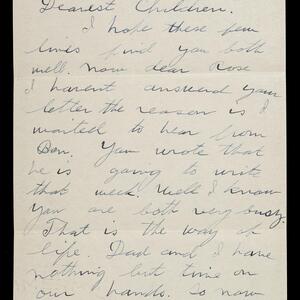 Dearest Children.
I hope these few
lines find you both
well. Now dear Rose
I havent answerd your
letter the reason is I
waited to hear from
Ben. You wrote that
he is going to write
that week. Well I know
you are both very busy.
That is the way of
life. Dad and I have
nothing but time on
our hands. So now